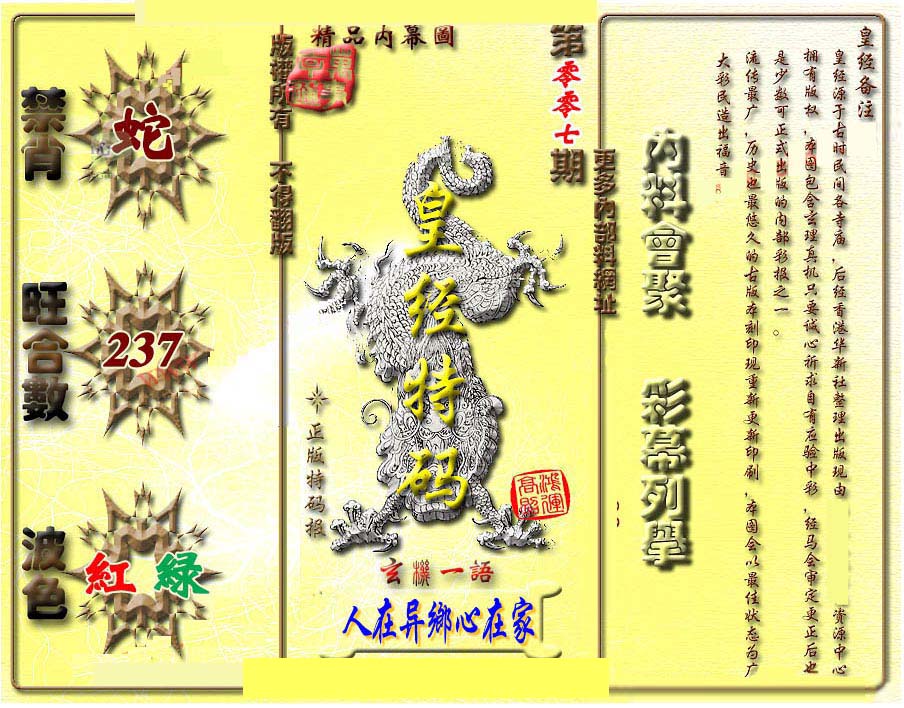 精品内幕圖
版權所有 不得翻版
第零零七期
更多內部料網址
禁肖
蛇
旺合數
237
波色
紅 綠
皇经特码
正版特码报
鸿運
高照
玄機一語
人在异鄉心在家
内料會聚
彩幕列舉
皇经备注
皇经源于古时民间各寺庙,后经香港华新社整理出版现由 资源中心
拥有版权,本图包含玄理真机只要诚心祈求自有应验中彩,经马会审定更正后也
是少数可正式出版的内部彩报之一。
流传最广,历史也最悠久的古版本刻印现重新更新印刷,本图会以最佳状态为广
大彩民造出福音